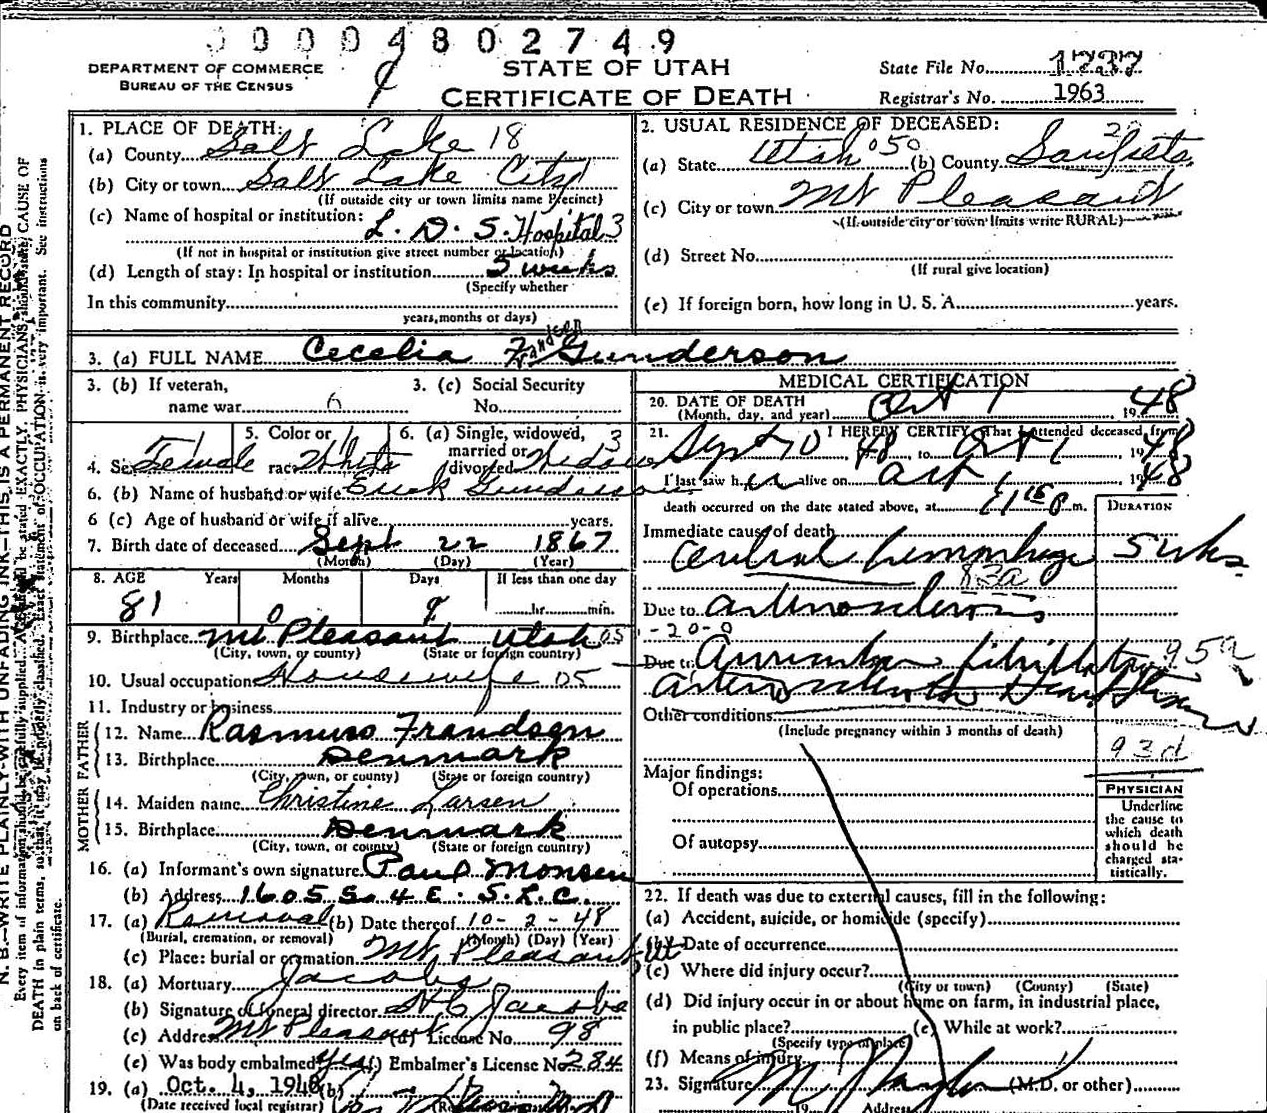 0 0 0 0 4 8 0 2 7 4 9
DEPARTMENT OF COMMERCE
BUREAU OF THE CENSUS
STATE OF UTAH
CERTIFICATE OF DEATH
State File No. 1737
Registrar's No. 1963
1. PLACE OF DEATH:
(a) County Salt Lake 18
(b) City or town Salt Lake City
(If outside city or town limits name Precinct)
(c) Name of hospital or institution:
L. D. S. Hospital 3
(If not in hospital or institution give street number or location)
(d) Length of stay: In hospital or institution 5 weeks
(Specify whether
In this community
years, months or days)
2. USUAL RESIDENCE OF DECEASED:
(a) State Utah 050 (b) County Sanpete
(c) City or town Mt Pleasant
(If outside city or town limits write RURAL)
(d) Street No.
(If rural give location)
(e) If foreign born, how long in U. S. A. years.
3. (a) FULL NAME Cecelia Frandsen Gunderson
3. (b) If veteran,
name war
3. (c) Social Security
No.
4. Sex Female
5. Color or
race White
6. (a) Single, widowed, 3
married or
divorced Widow
6. (b) Name of husband or wife Erick Gunderson
6 (c) Age of husband or wife if alive years.
7. Birth date of deceased Sept 22 1867
(Month) (Day) (Year)
8. AGE Years Months Days If less than one day
81 0 9 hr. min.
9. Birthplace Mt Pleasant Utah 05
(City, town, or county) (State or foreign country)
10. Usual occupation Housewife 05
11. Industry or business
FATHER
12. Name Rasmus Frandsen
13. Birthplace Denmark
(City, town, or county) (State or foreign country)
MOTHER
14. Maiden name Christine Larsen
15. Birthplace Denmark
(City, town, or county) (State or foreign country)
16. (a) Informant's own signature Paul Monsen
(b) Address 1605 S. 4 E. S.L.C.
17. (a) Removal (b) Date thereof 10-2-48
(Burial, cremation, or removal) (Month) (Day) (Year)
(c) Place: burial or cremation Mt Pleasant Ut
18. (a) Mortuary Jacobs
(b) Signature of funeral director H C Jacobs
(c) Address Mt Pleasant (d) License No. 98
(e) Was body embalmed yes (f) Embalmer's License No 284
19. (a) Oct. 4, 1948 (b)
(Date received local registrar)
MEDICAL CERTIFICATION
20. DATE OF DEATH
(Month, day, and year) Oct 1, 1948
21. I HEREBY CERTIFY, That I attended deceased from
Sept 10, 48, to Oct 1, 1948
I last saw her alive on Oct 1, 1948
death occurred on the date stated above, at 11 15 P.m.
DURATION
Immediate cause of death
Cerebral hemorrhage 5 wks
83a
Due to arteriosclerosis
-20-0
Due to Auricular fibrillation 95a
arteriosclerotic Heart disease
Other conditions
(Include pregnancy within 3 months of death)
93d
Major findings:
Of operations
Of autopsy
PHYSICIAN
Underline
the cause to
which death
should be
charged sta-
tistically.
22. If death was due to external causes, fill in the following:
(a) Accident, suicide, or homicide (specify)
(b) Date of occurrence
(c) Where did injury occur?
(City or town) (County) (State)
(d) Did injury occur in or about home on farm, in industrial place,
in public place? (e) While at work?
(Specify type of place)
(f) Means of injury
23. Signature (M.D. or other)
19 Address
N. B.—WRITE PLAINLY WITH UNFADING INK—THIS IS A PERMANENT RECORD
Every item of information should be carefully supplied. AGE should be stated EXACTLY. PHYSICIANS should state CAUSE OF
DEATH in plain terms, so that it may be properly classified. Exact statement of OCCUPATION is very important. See instructions
on back of certificate.